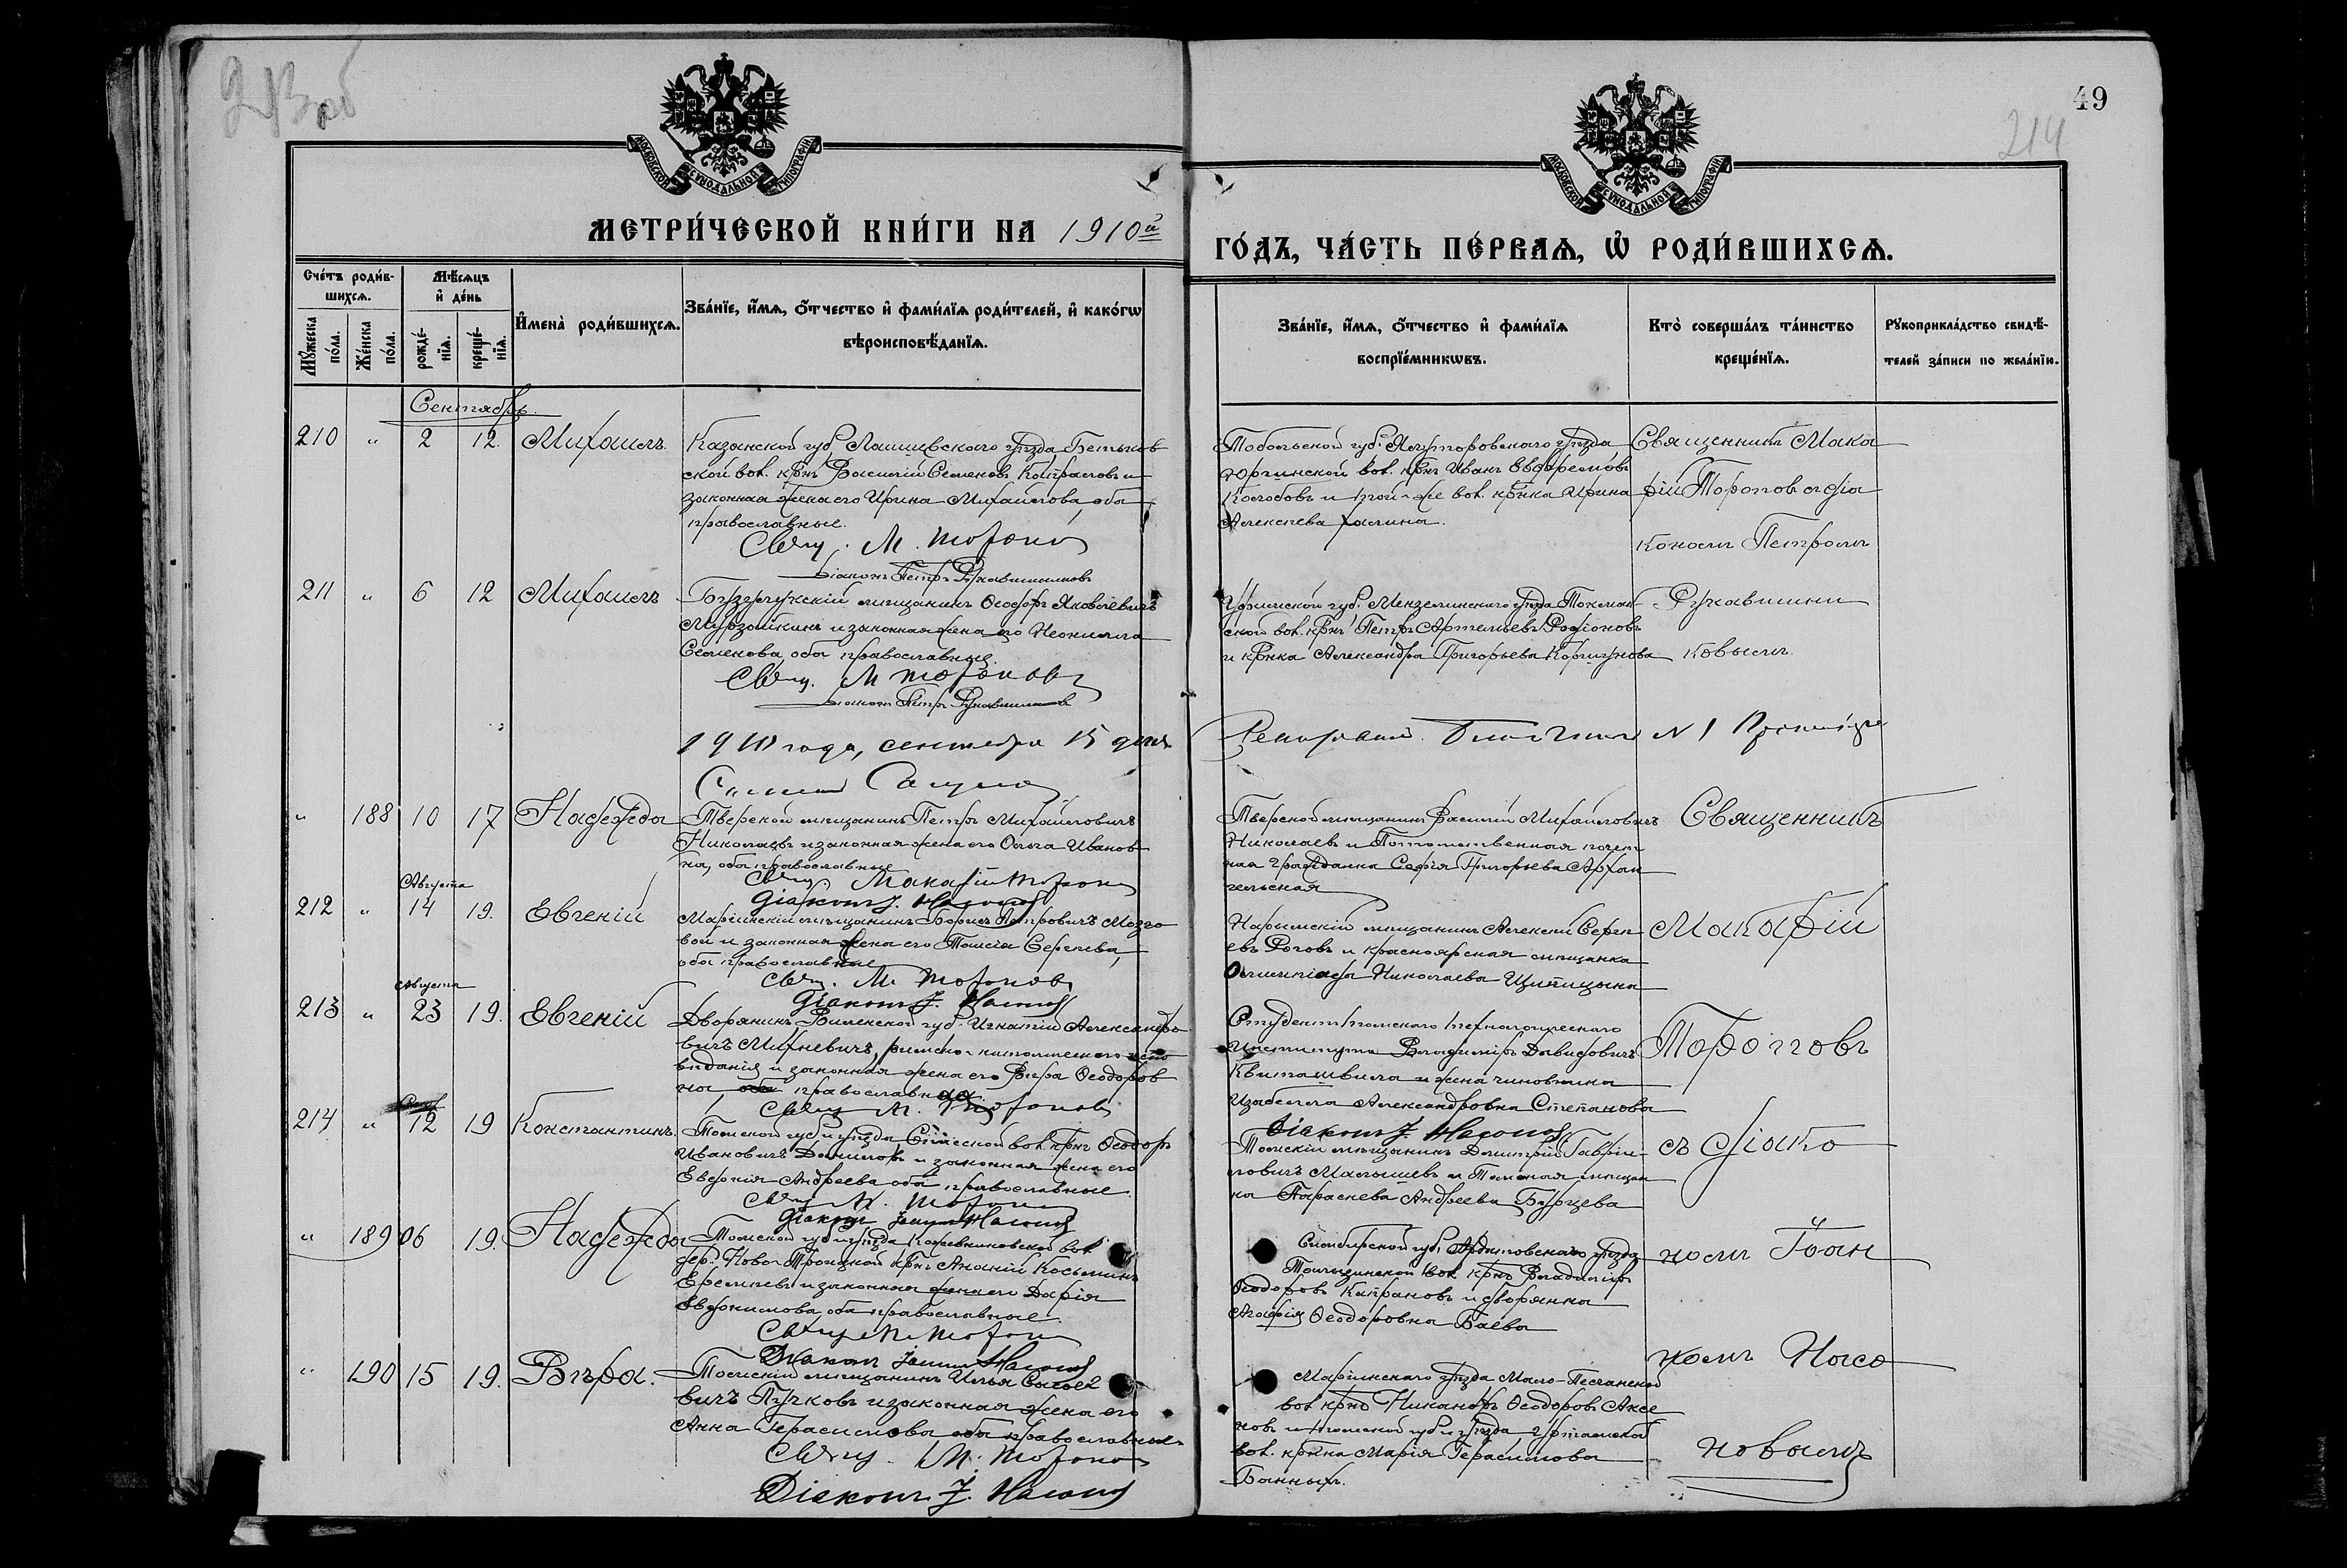 213об
49
214
МОСКОВСКОЙ СѴНОДАЛЬНОЙ ТИПОГРАФІИ
МОСКОВСКОЙ СѴНОДАЛЬНОЙ ТИПОГРАФІИ
МЕТРИ́ЧЕСКОЙ КНИ́ГИ НА 1910й
ГО́ДЪ, ЧА́СТЬ ПЕ́РВАѦ, Ѡ҆ РОДИ́ВШИХСѦ.
Сче́тъ роди́в-
шихсѧ.
Мꙋ́жеска по́ла.
Же́нска по́ла.
Мѣ́сѧцъ
и҆ де́нь
рожде́-
нїѧ.
креще́-
нїѧ.
И҆мена̀ роди́вшихсѧ.
Зва́нїе, и҆́мѧ, ѻ҆́тчество и҆ фами́лїѧ роди́телей, и҆ како́гѡ
вѣроисповѣ́данїѧ.
Зва́нїе, и҆́мѧ, ѻ҆́тчество и҆ фами́лїѧ
воспрїе́мникѡвъ.
Кто̀ соверша́лъ та́инство
креще́нїѧ.
Рꙋкоприкла́дство свидѣ́-
телей за́писи по жела́нїю.
Сентябрь.
210 " 2 12. Михаилъ.
Казанской губ. Лаишевскаго уѣзда Бетьков
ской вол. крнъ Василій Семеновъ Кондрашовъ и
законная жена его Ирина Михайлова, оба
православные.
Свящ. М. Торопов
Діаконъ Петръ Рукавишниковъ
Тобольской губ. Ялуторовскаго уѣзда
Юргинской вол. крнъ Иванъ Евфремовъ
и той-же вол. крнка Ирина
Алексѣева
Священникъ Мака
рій Тороповъ съ діа
кономъ Петромъ
211 " 6 12 Михаилъ
Бузулукскій мѣщанинъ Ѳеодоръ Яковлевичъ
Мурзайкинъ и законная жена его Неонилла
Семенова оба православные.
Свящ. М Тороповъ
Діаконъ Петръ Рукавишников
Уфимской губ. Мензелинскаго уѣзда Токмак-
ской вол. крнъ Петръ Артемьевъ Родіоновъ
и крнка Александра Григорьева Коршунова
Рукавишни
ковымъ.
1910 года, сентября 15 дня
Ревизовалъ Благочинный N 1
" 188 10 17 Надежда
Тверской мѣщанинъ Петръ Михайловичъ
Николаевъ и законная жена его Ольга Иванов
на, оба православные
Свящ Макарій Торопов
Діаконъ І. Насонов
Тверской мѣщанинъ Василій Михайловичъ
Николаевъ и Потомственная почет
ная гражданка Софія Григорьева Архан
гельская
Священникъ
Августа
212 " 14 19. Евгеній
Маріинскій мѣщанинъ Борисъ Петровичъ Мозго
вой и законная жена его Таисія Сергѣева,
оба православные
Свящ. М. Тороповъ
Діаконъ І. Насонов
Нарымскій мѣщанинъ Алексѣй Сергѣ
евъ Роговъ и красноярская мѣщанка
Олимпіада Николаева Щипицына
Макарій
Августа
213 " 23 19. Евгеній
Дворянинъ Виленской губ. Игнатій Александро
вичъ Михневичъ, римско-католическаго испо
вѣданія и законная жена его Вѣра Ѳеодоров
на, православная.
Свящ М. Тороповъ
Діаконъ І. Насонов
Студентъ томскаго технологическаго
Института Владиміръ Давидовичъ
Квиташвили и жена чиновника
Изабелла Александровна Степанова
Тороповъ
214 " 12 19 Константинъ.
Томской губ и уѣзда Спасской вол. крнъ Ѳеодоръ
Ивановичъ Даниловъ и законная жена его
Евдокія Андреева оба православные.
Свящ М. Торопов
Діаконъ Іоаннъ Насонов
Томскій мѣщанинъ Димитрій Гаврі-
ловичъ Малышевъ и Томская мѣщан
ка Параскева Андреева Бурцева
съ діако
" 189 06 19. Надежда
Томской губ и уѣзда Кожевниковской вол.
дер. Ново-Троицкой крнъ Ананій Косьминъ
Еремѣевъ и законная жена его Дарія
Евфимова, оба православные.
Свящ М Торопов
Діаконъ Іоаннъ Насонов
Симбирской губ. Ардатовскаго уѣзда
вол. крнъ Владиміръ
Ѳеодоровъ Капрановъ и дворянка
Агафія Ѳеодоровна Баева
номъ Іоан
" 190 15 19. Вѣра.
Томскій мѣщанинъ Илья Савве
вичъ Пучковъ и законная жена его
Анна Герасимова оба православные
Свящ. М. Торопов
Діаконъ І. Насонов
Маріинскаго уѣзда Мало-Песчанской
вол. крнъ Никаноръ Ѳеодоровъ Аксе
новъ и томской губ и уѣзда, Уртамской
вол. крнка Марія Герасимова
Банныхъ.
номъ Насо
новымъ